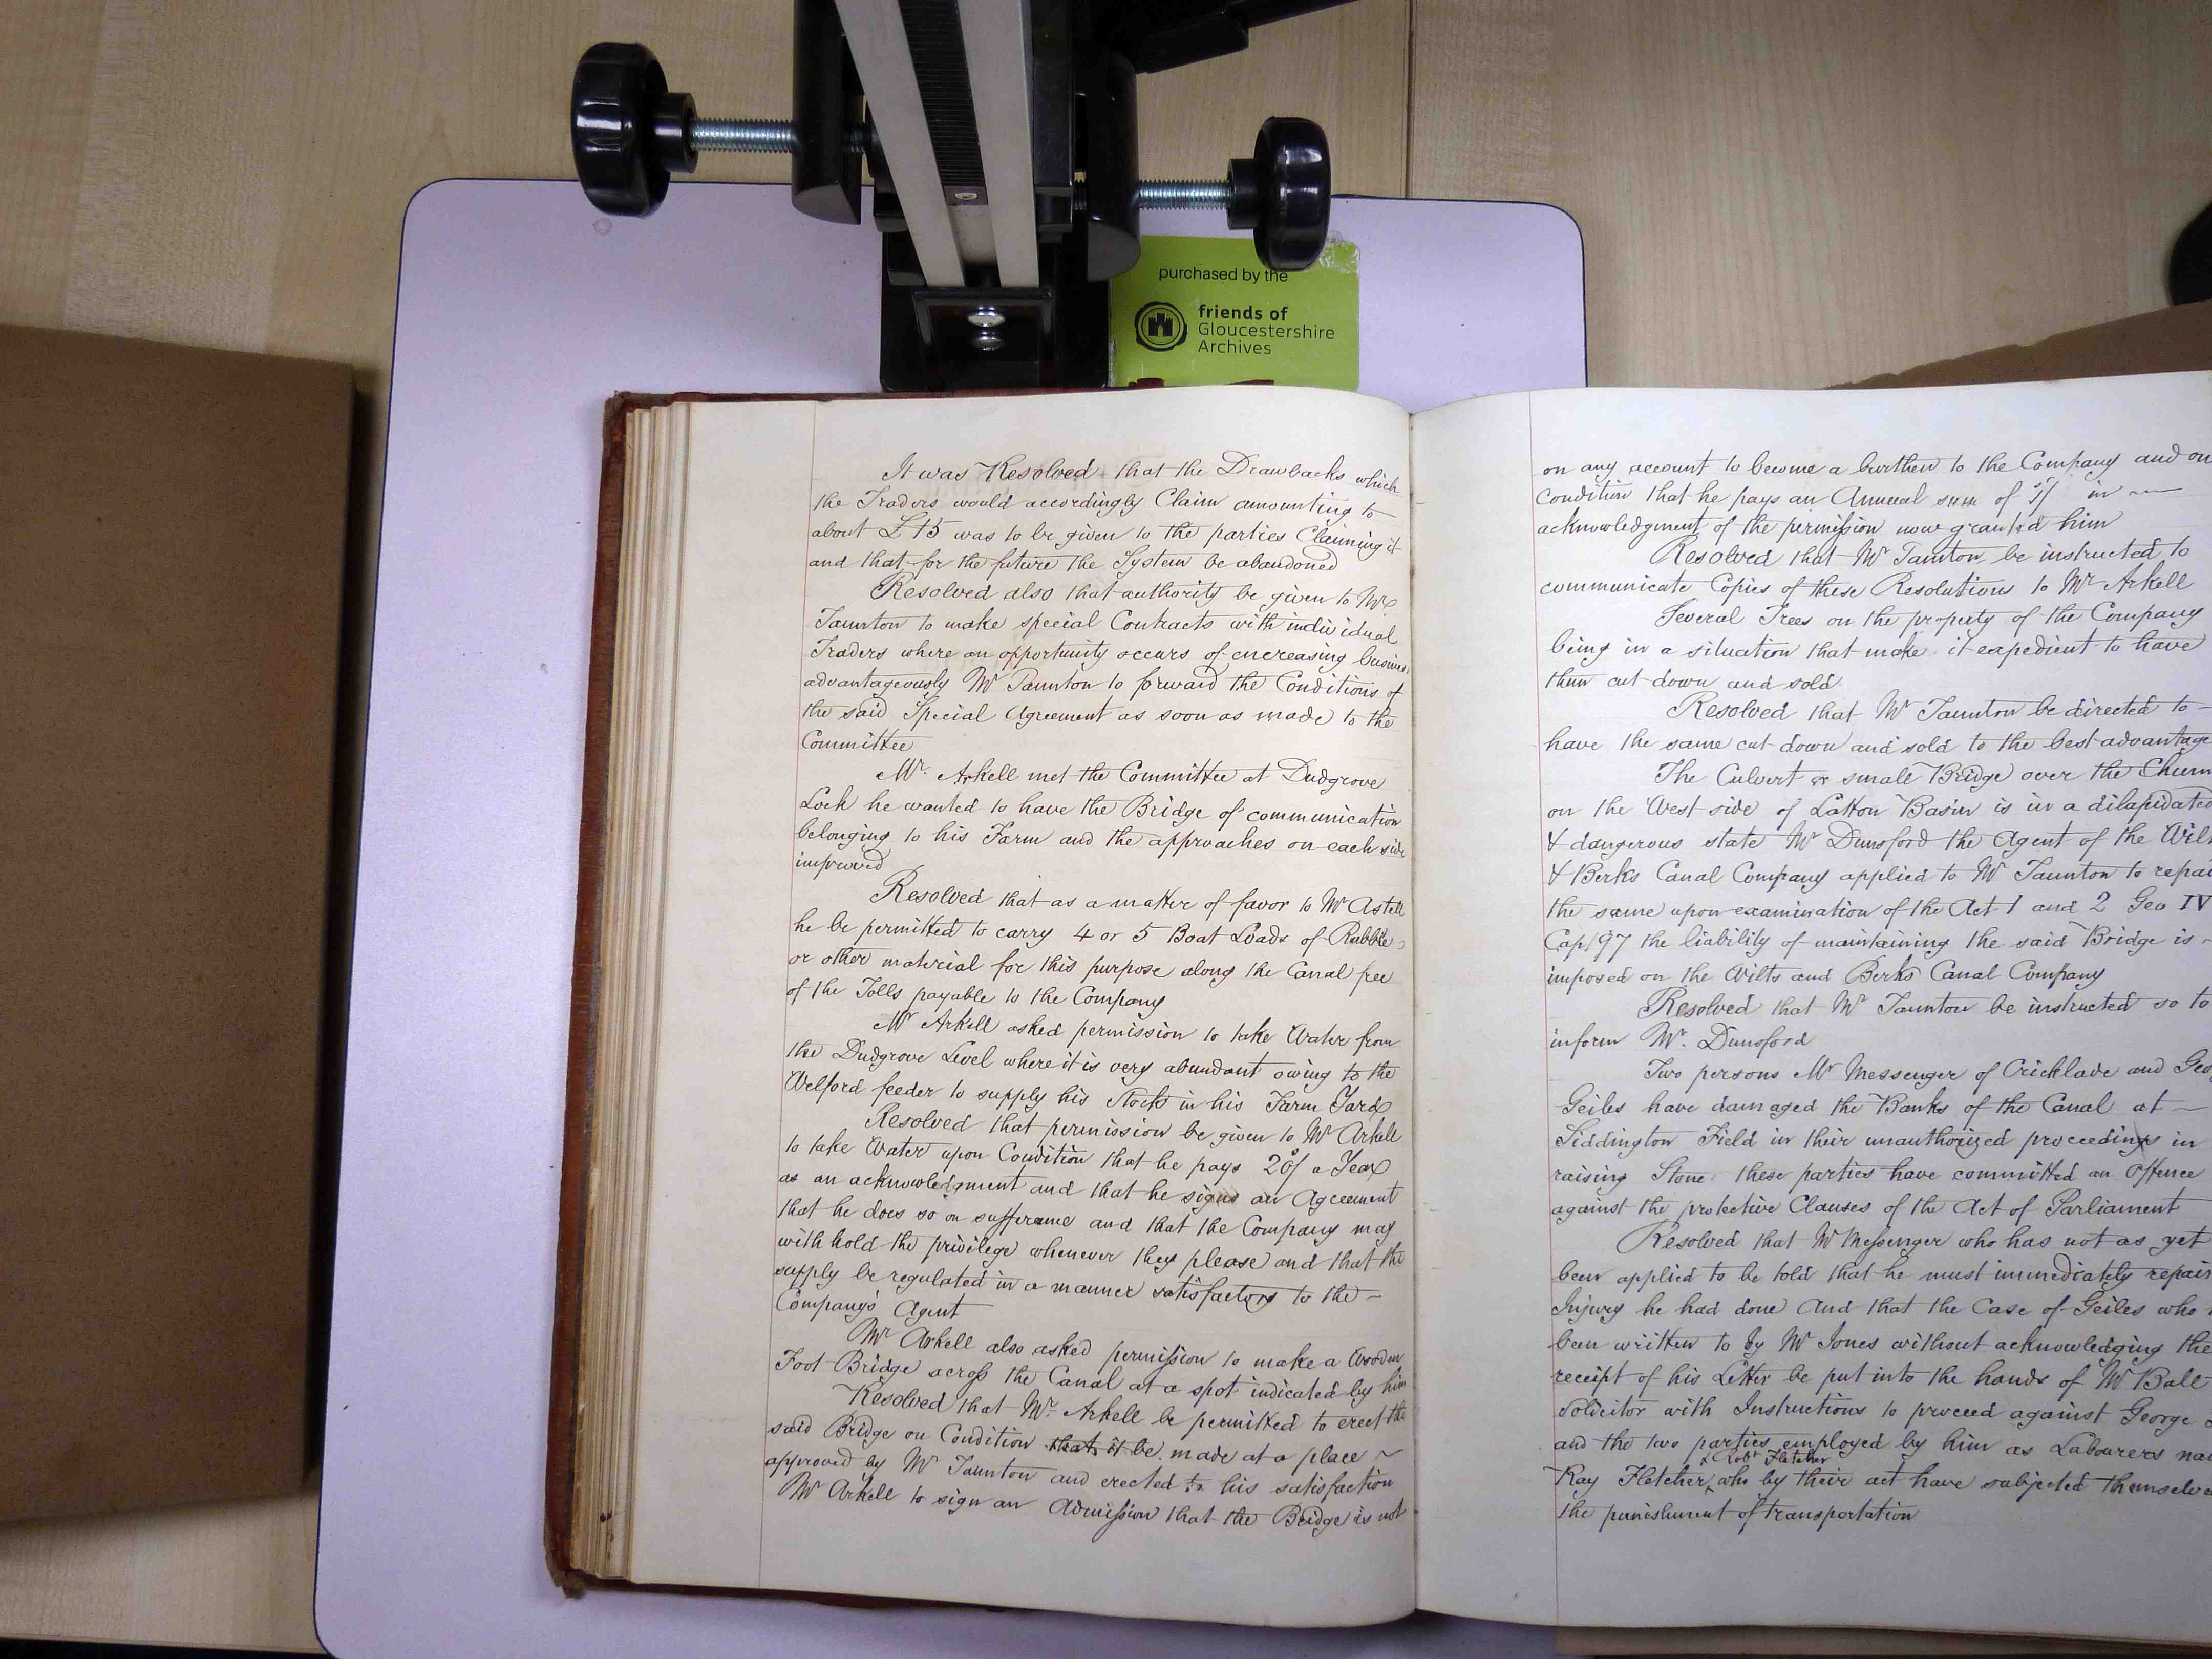 purchased by the
friends of
Gloucestershire
Archives
It was Resolved that the Drawbacks which
the Traders would accordingly Claim amounting to
about £15 was to be given to the parties Claiming it
and that for the future the System be abandoned
Resolved also that authority be given to Mr
Taunton to make special Contracts with individual
Traders where an opportunity occurs of encreasing business
advantageously Mr Taunton to forward the Conditions of
the said Special Agreement as soon as made to the
Committee
Mr. Arkell met the Committee at Dudgrove
Lock he wanted to have the Bridge of communication
belonging to his Farm and the approaches on each side
improved
Resolved that as a matter of favor to Mr Astell
he be permitted to carry 4 or 5 Boat Loads of Rubble
or other material for this purpose along the Canal free
of the Tolls payable to the Company
Mr Arkell asked permission to take Water from
the Dudgrove Level where it is very abundant owing to the
Welford feeder to supply his Stock in his Farm Yard
Resolved that permission be given to Mr Arkell
to take Water upon Condition that he pays 20/ a Year
as an acknowledgment and that he signs an Agreement
that he does so on sufferance and that the Company may
with hold the privilege whenever they please and that the
supply be regulated in a manner satisfactory to the –
Company's Agent
Mr Arkell also asked permission to make a Wooden
Foot Bridge across the Canal at a spot indicated by him
Resolved that Mr. Arkell be permitted to erect the
said Bridge on Condition that it be made at a place ~
approved by Mr Taunton and erected to his satisfaction
Mr Arkell to sign an Admission that the Bridge is not
on any account to become a burthen to the Company and on
condition that he pays an Annual sum of in
acknowledgment of the permission now granted him
Resolved that Mr Taunton be instructed to
communicate Copies of these Resolutions to Mr Arkell
Several Trees on the property of the Company
being in a situation that make it expedient to have
them cut down and sold
Resolved that Mr Taunton be directed to –
have the same cut down and sold to the best advantage
The Culvert or small Bridge over the Churn
on the West side of Latton Basin is in a dilapidated
& dangerous state Mr Dunsford the Agent of the Wilt
& Berks Canal Company applied to Mr Taunton to repai
the same upon examination of the Act 1 and 2 Geo IV
Cap 97 the liability of maintaining the said Bridge is –
imposed on the Wilts and Berks Canal Company
Resolved that Mr Taunton be instructed so to
inform Mr. Dunsford
Two persons Mr Messenger of Cricklade and Geo
Geiles have damaged the Banks of the Canal at –
Siddington Field in their unauthorized proceedings in
raising Stone these parties have committed an Offence
against the protective Clauses of the Act of Parliament
Resolved that Mr Messenger who has not as yet
been applied to be told that he must immediately repair
Injury he had done And that the Case of Geiles who
been written to by Mr Jones without acknowledging the
receipt of his Letter be put into the hands of Mr Ball
Solicitor with Instructions to proceed against George
and the two parties employed by him as Labourers na
& Robt Fletcher
Ray Fletcher who by their act have subjected themselve
the punishment of transportation